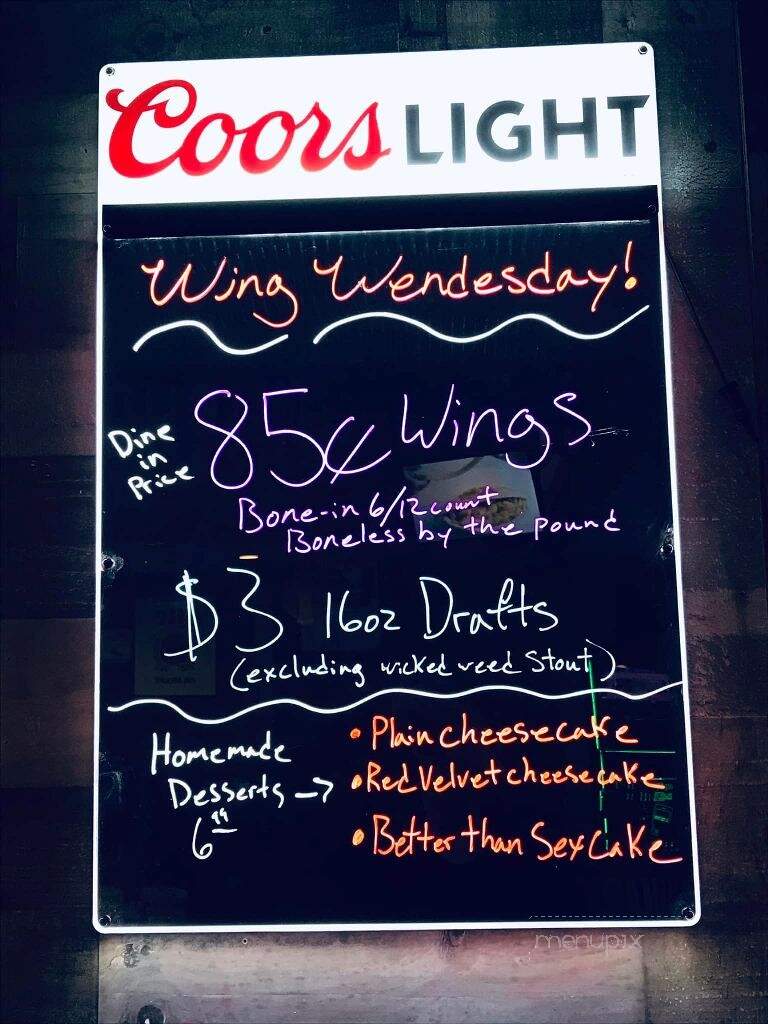 Coors LIGHT
Wing Wendesday!
Dine
in
Price
85¢ Wings
Bone-in 6/12 count
Boneless by the pound
$3 16oz Drafts
(excluding wicked weed Stout)
Homemade
Desserts →
6.99
• Plain cheesecake
• Red Velvet cheesecake
• Better than Sex Cake
menupix